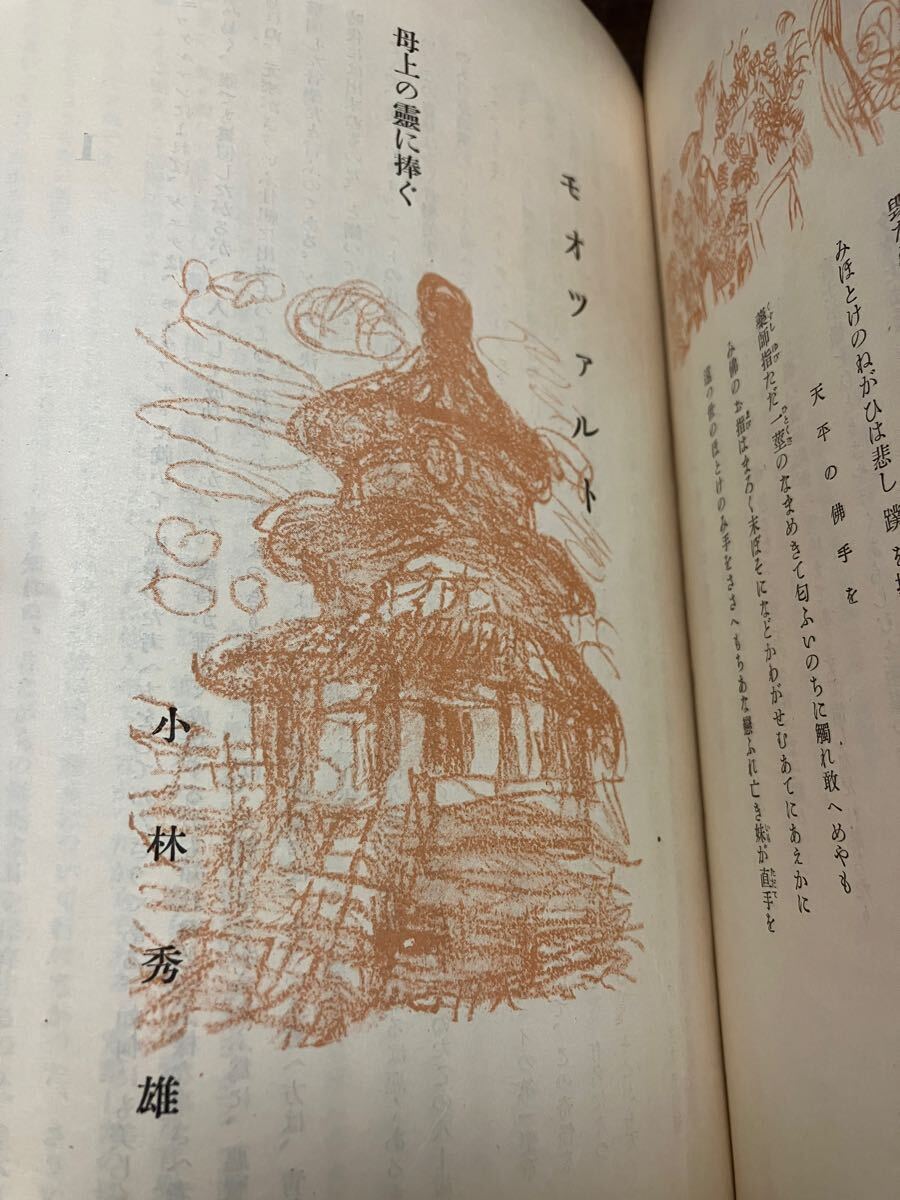 みほとけのねがひは悲し
天平の佛手を
藥師指ただ一莖のなまめきて匂ふいのちに觸れ敢へめやも
み佛のお指はまろく末ぼそになどかわがせむあてにあえかに
のほとけのみ手をささへもちあな戀ふれ亡き妹が直手を
モオツァルト
母上の靈に捧ぐ
小林秀雄